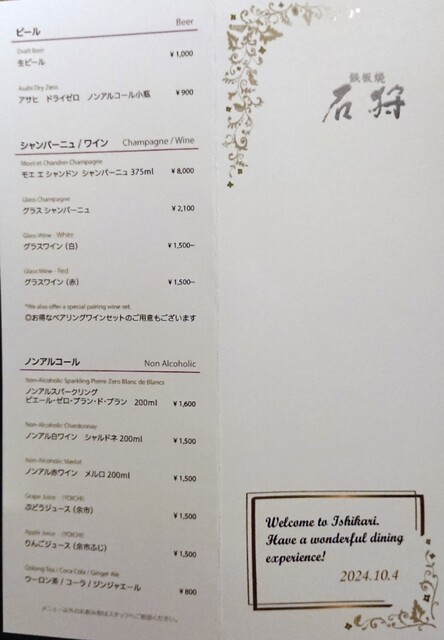 ビール Beer
Draft Beer
生ビール ¥1,000
Asahi Dry Zero
アサヒ ドライゼロ ノンアルコール小瓶 ¥900
シャンパーニュ / ワイン Champagne / Wine
Moet et Chandon Champagne
モエ エ シャンドン シャンパーニュ 375ml ¥8,000
Glass Champagne
グラス シャンパーニュ ¥2,100
Glass Wine - White
グラスワイン (白) ¥1,500~
Glass Wine - Red
グラスワイン (赤) ¥1,500~
*We also offer a special pairing wine set.
◎お得なペアリングワインセットのご用意もございます
ノンアルコール Non Alcoholic
Non-Alcoholic Sparkling Pierre Zero Blanc de Blancs
ノンアルスパークリング
ピエール・ゼロ・ブラン・ド・ブラン 200ml ¥1,600
Non-Alcoholic Chardonnay
ノンアル白ワイン シャルドネ 200ml ¥1,500
Non-Alcoholic Merlot
ノンアル赤ワイン メルロ 200ml ¥1,500
Grape Juice (YOICHI)
ぶどうジュース (余市) ¥1,500
Apple Juice (YOICHI)
りんごジュース (余市ふじ) ¥1,500
Oolong Tea / Coca-Cola / Ginger Ale
ウーロン茶 / コーラ / ジンジャエール ¥800
メニュー以外のお飲み物はスタッフへご相談ください。
鉄板焼
石狩
Welcome to Ishikari.
Have a wonderful dining
experience!
2024.10.4